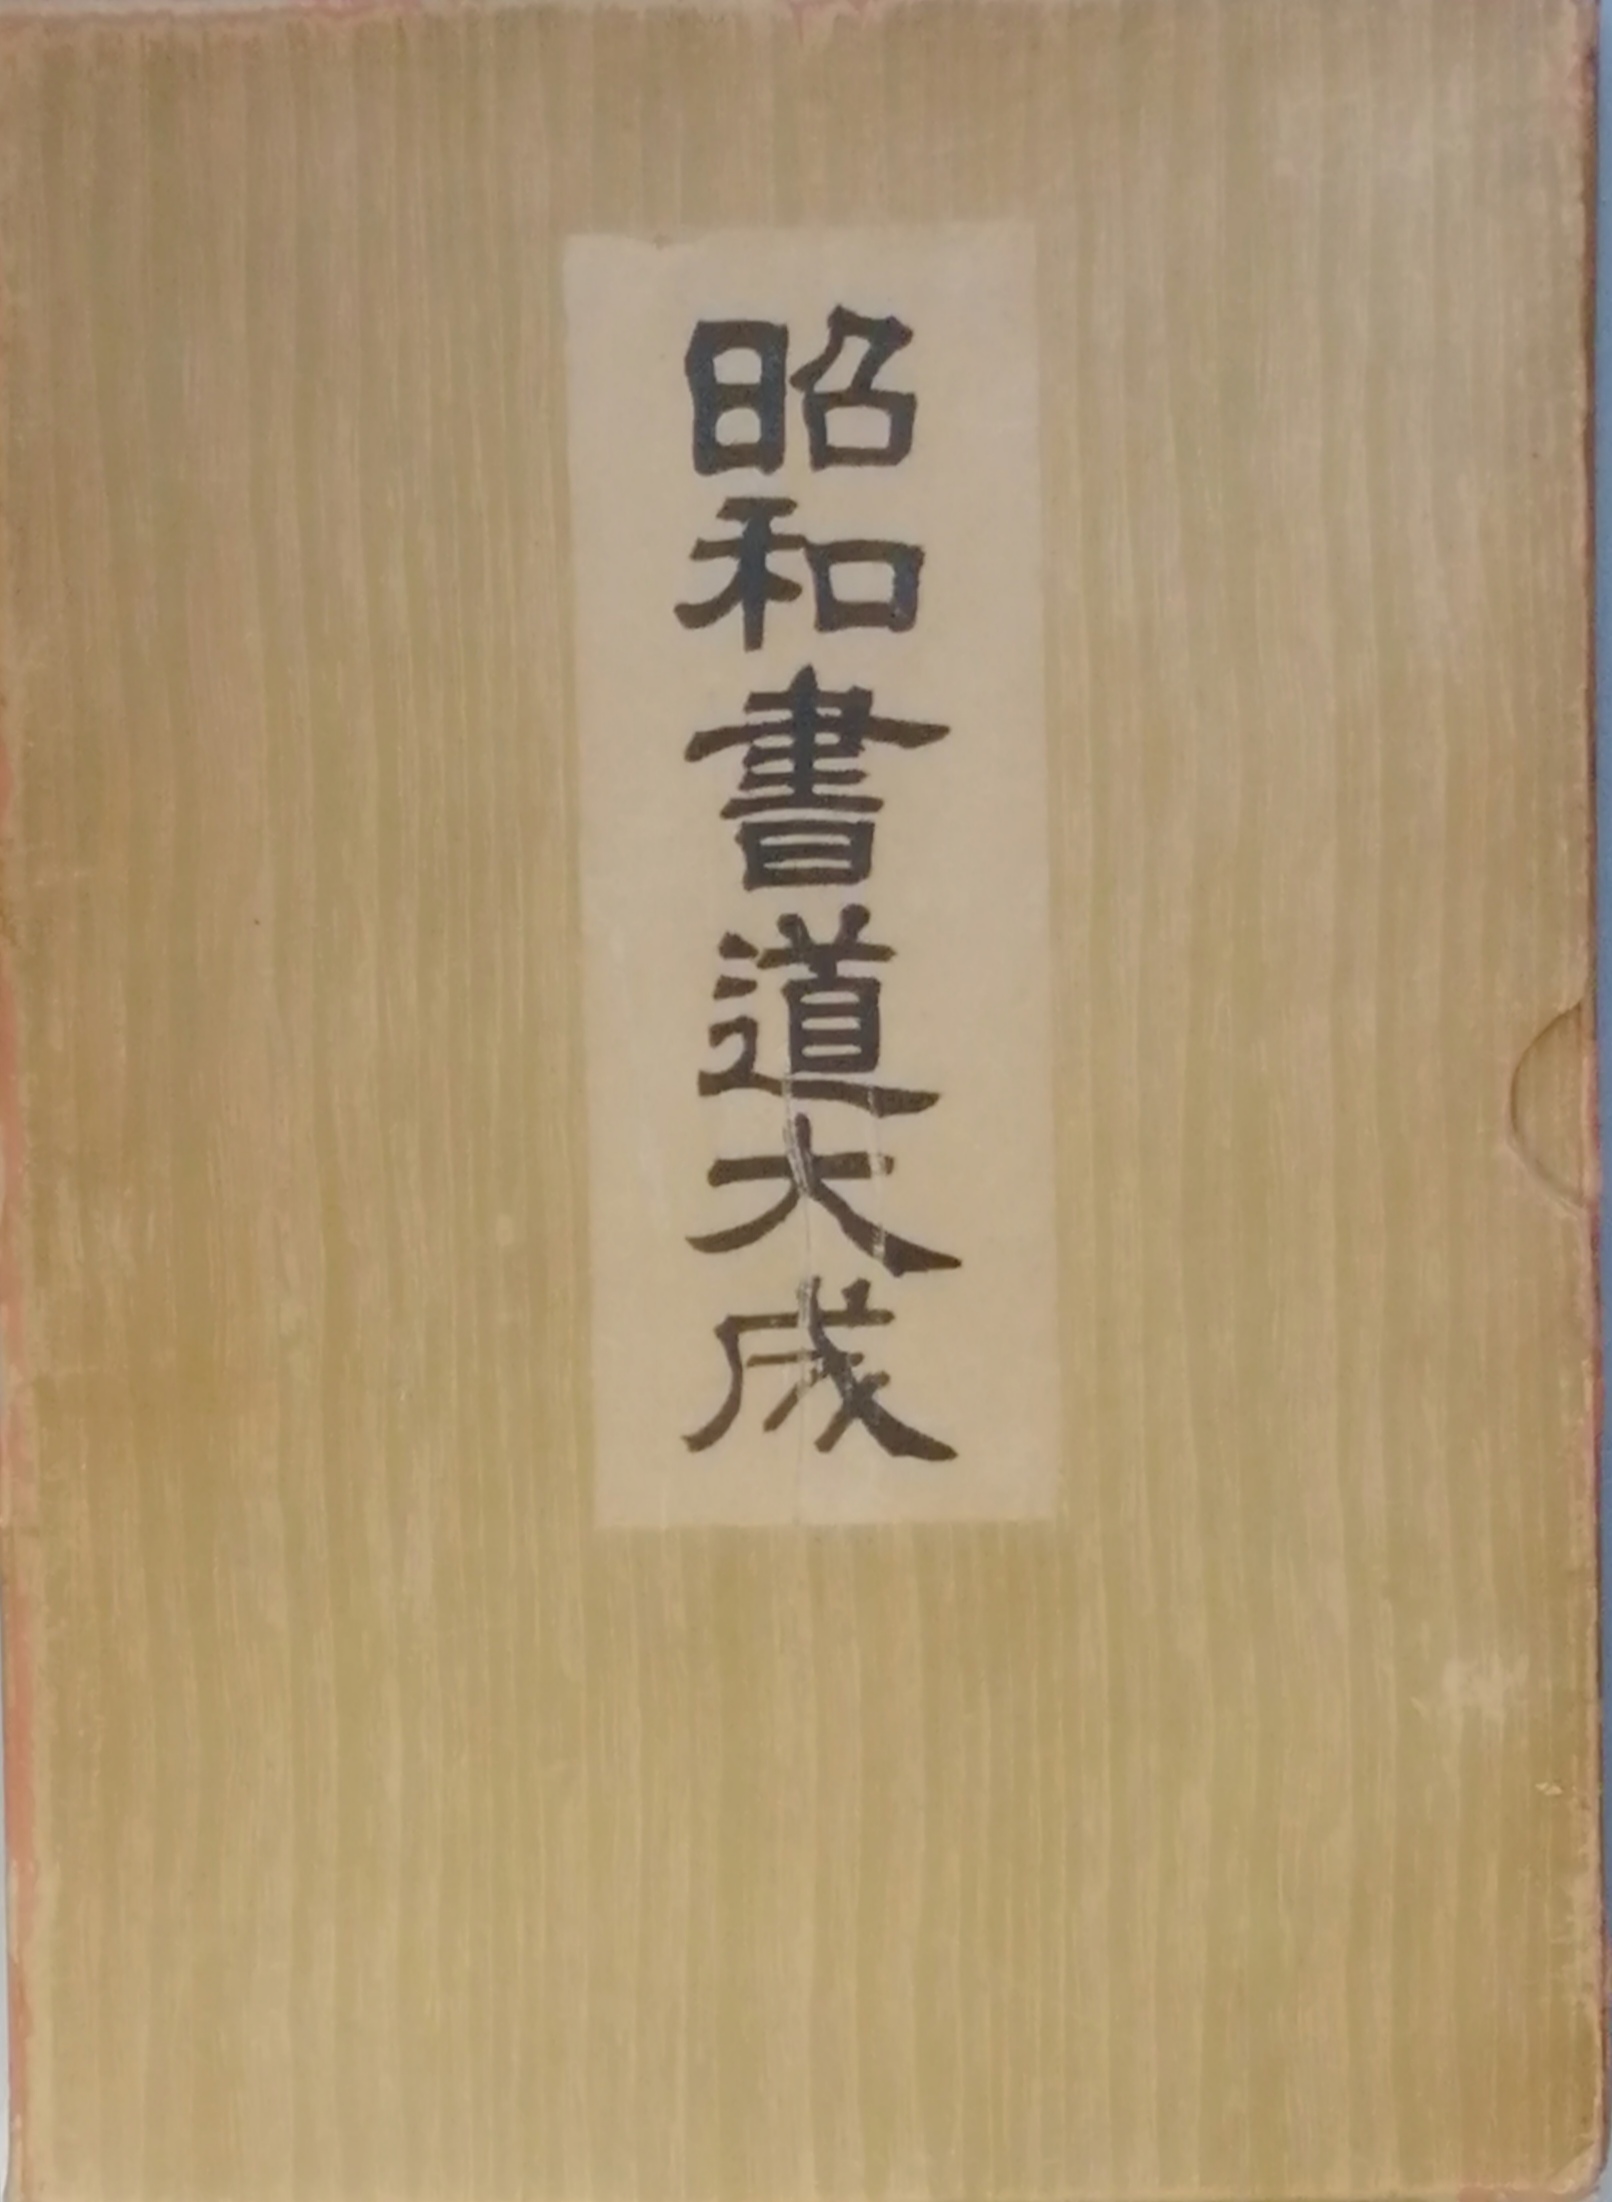 昭和書道大成